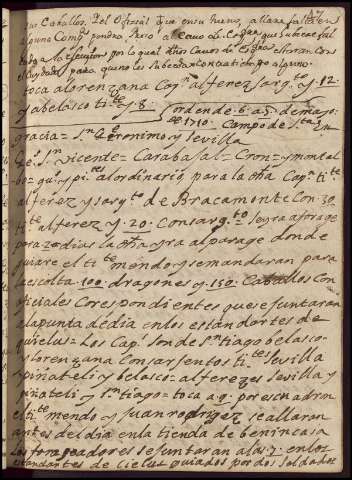 sus Cavallos. Del oficial que en su nuevo, allare falta en
alguna Comp. pondra Preso al cavo de
lo qual dhos Cavos de
el cuydado para que no les subceda contratiempo alguno.
toca a lorenzana Cap.n alferez sarg.to y 12
y a belasco ti.te y 8
orden de 6 a 5 de mayo
de 1710 Campo de S.ta
gracia = S.n Geronimo y Sevilla
G.l S.n vicente = Carabajal = Cron = y montal
bo = g.s y pi.tes a lordinario, para la gña Cap.n ti.te
alferez y sarg.to de Bracamonte Con 30
ti.te alferez y 20 Con sarg.to Se yra a foraje
para 2 dias la gña yra al parage donde
guiare el ti.te mendo y se mandaran para
la escolta 100 dragones y 150 Caballos Con
oficiales Corespondientes que se juntaran
a la punta de dia en los estandartes de
quielus = Los Cap.s son de S.ntiago belasco
y lorenzana Con sarjentos ti.tes Sevilla
y piñateli y belasco = alferezes Sevilla y
piñateli y S.ntiago = toca a 9 por escuadron
el ti.te mendo y Juan rodrigez se allaran
antes del dia en la tienda de benincasa
Los forageadores se juntaran a las 7 en los
estandartes de cielus guiados por dos soldados